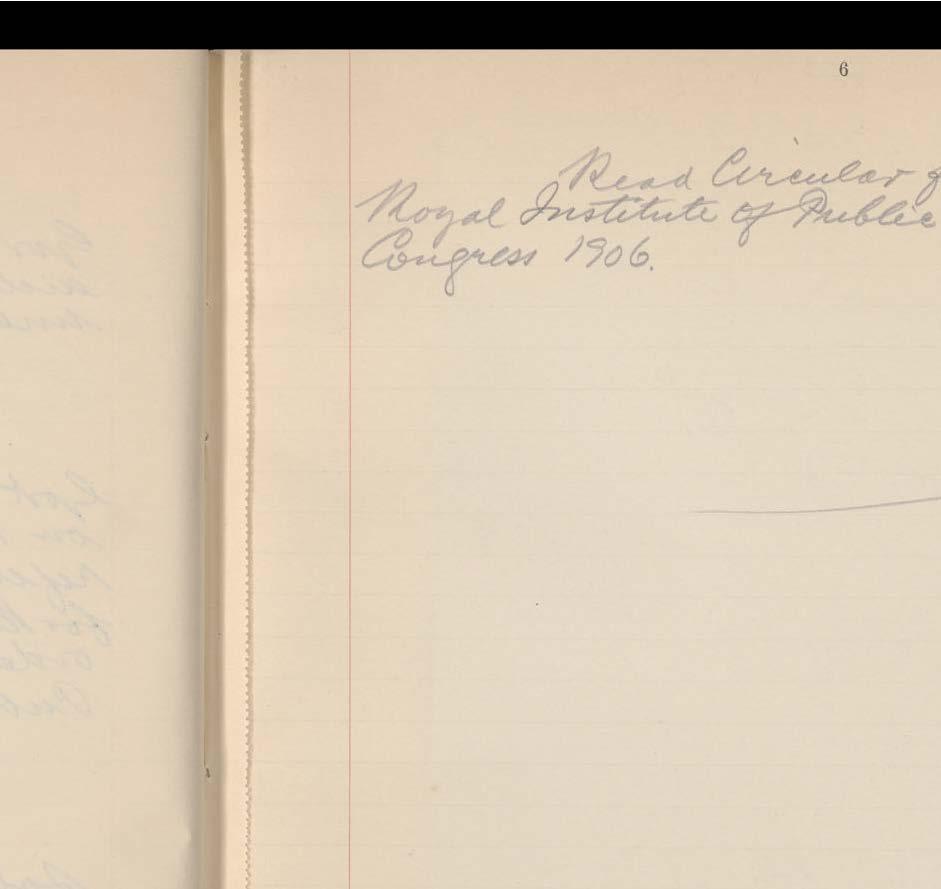 6
Read Circular
Royal Institute of Public
Congress 1906.